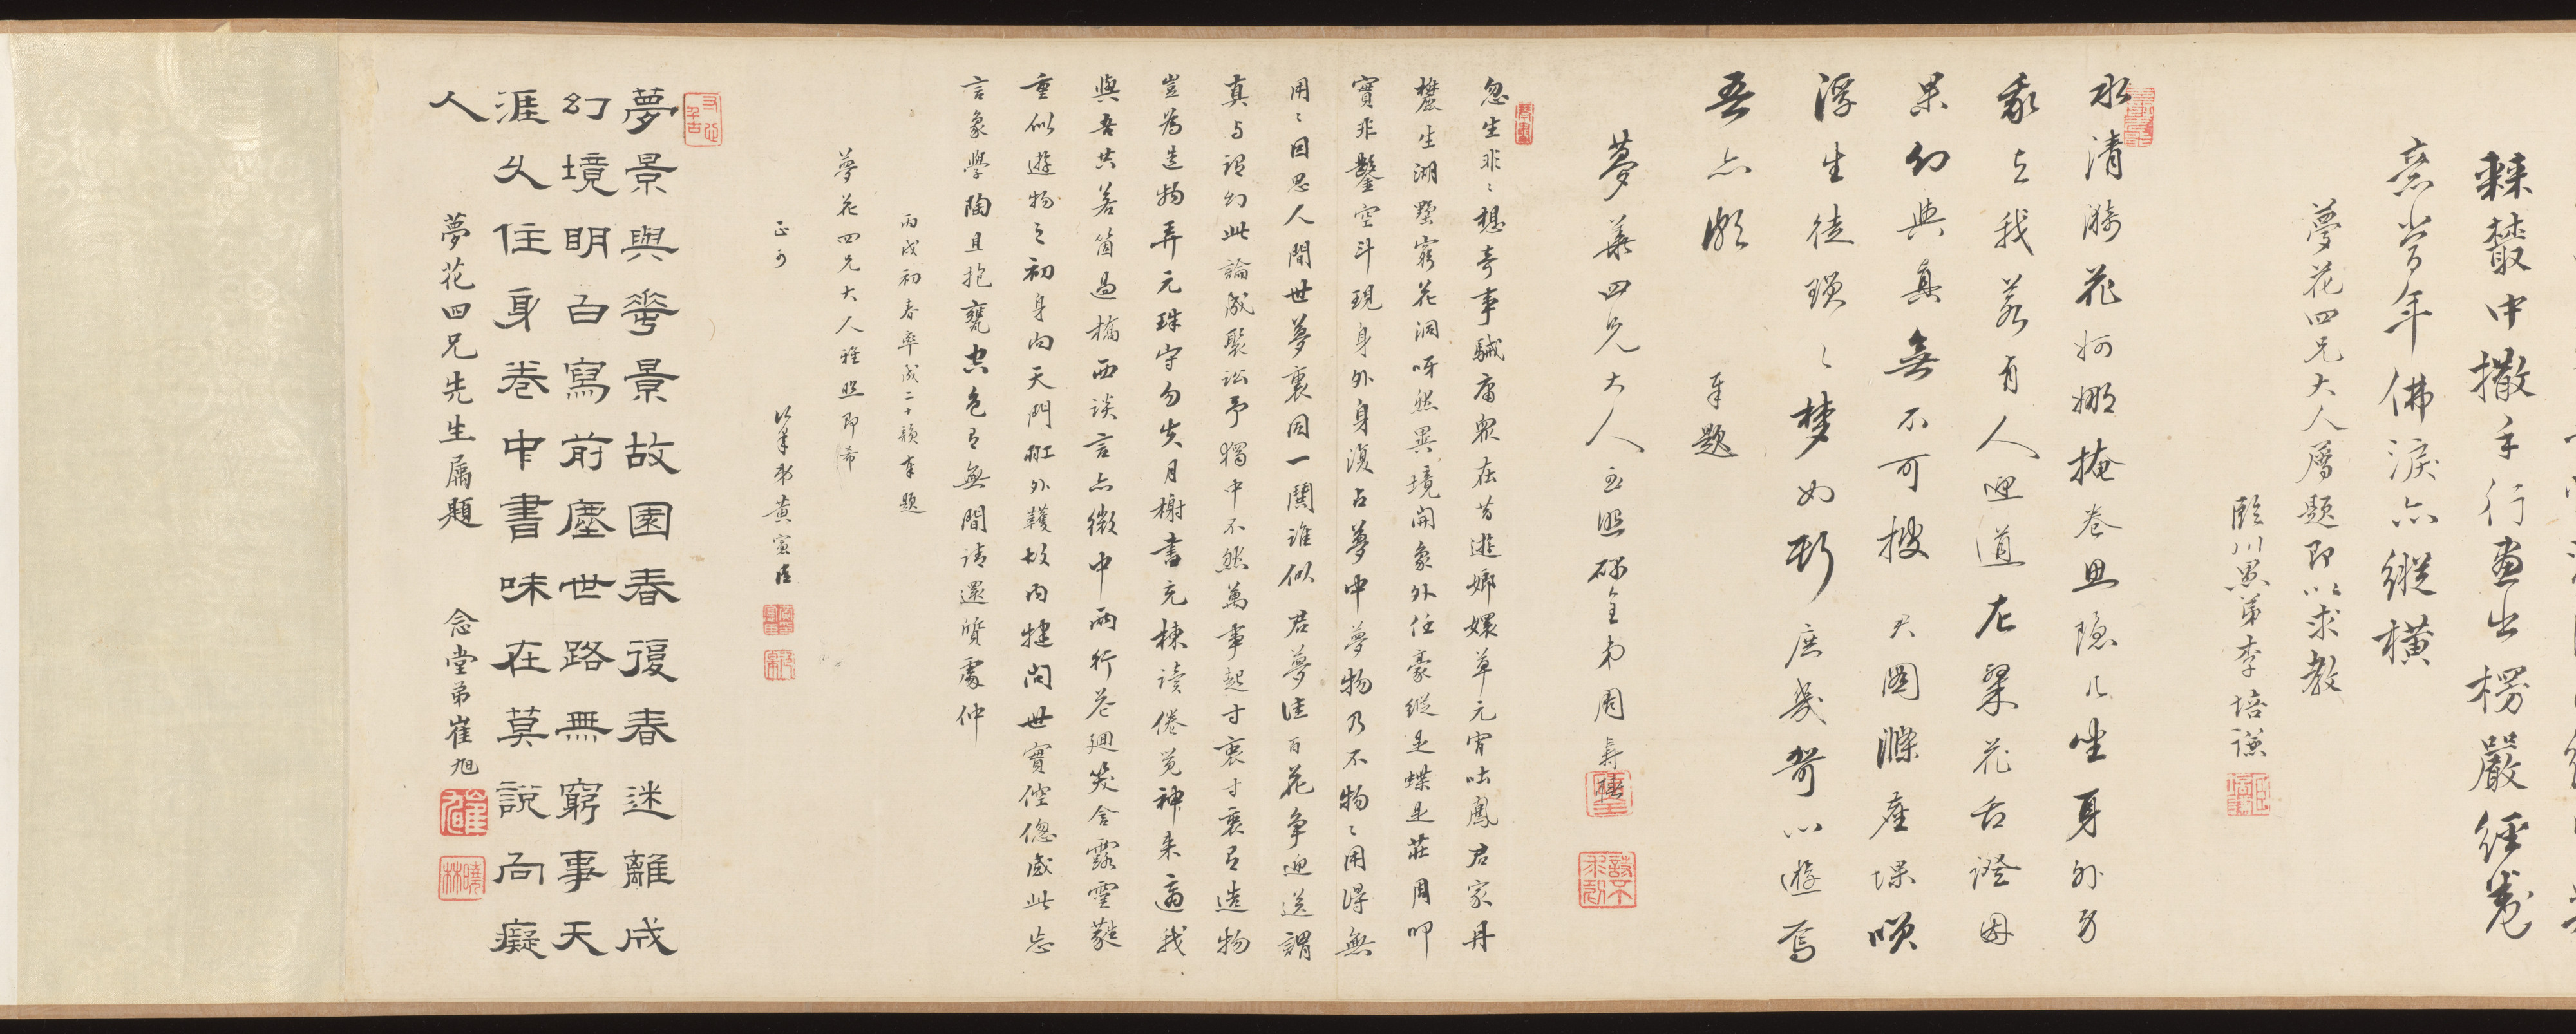 棘叢中撒手行畫出楞嚴經卷
意當年佛淚亦縱橫
夢花四兄大人屬題即以求教
臨川愚弟李培謙
水清漪花婀娜掩卷思隱几坐身外身
我之我若有人兮道左粲花舌證因
果幻與真無不可搜大圓滌塵垛嘆
浮生徒瑣瑣夢如斫庶幾駕以遊焉
吾亦頗 奉題
夢華四兄大人玉照 弟周壽
忽生非非想奇事駴庸眾在昔遊嫏嬛草元宵吐鳳君家丹
麓生湖墅窮花洞呀然異境開象外任豪縱是蝶是莊周叩
實非鑿空斗現身外身演占夢中夢物乃不物物用得無
用用因思人間世夢裏同一鬨誰似君夢佳百花爭迎送謂
真与謂幻此論成聚訟予獨中不然萬事起寸衷寸衷有造物
豈為造物弄元珠守勿失月榭書充棟讀倦覺神來適我
與吾共若箇過橋西談言亦微中兩行花迴笑含露靈蕤
重似遊物之初身向天門外韄故內揵問世實倥傯感此忘
言象學陶且抱甕空色有無間請還質虞仲
丙戌初春率成二十韻奉題
夢花四兄大人雅照即希
正可 弟黃
夢景與華景故園春復春迷離成
幻境明白寫前塵世路無窮事天
涯久住身卷中書味在莫說向癡
人
夢花四兄先生屬題 念堂弟崔旭
崔旭
曉林